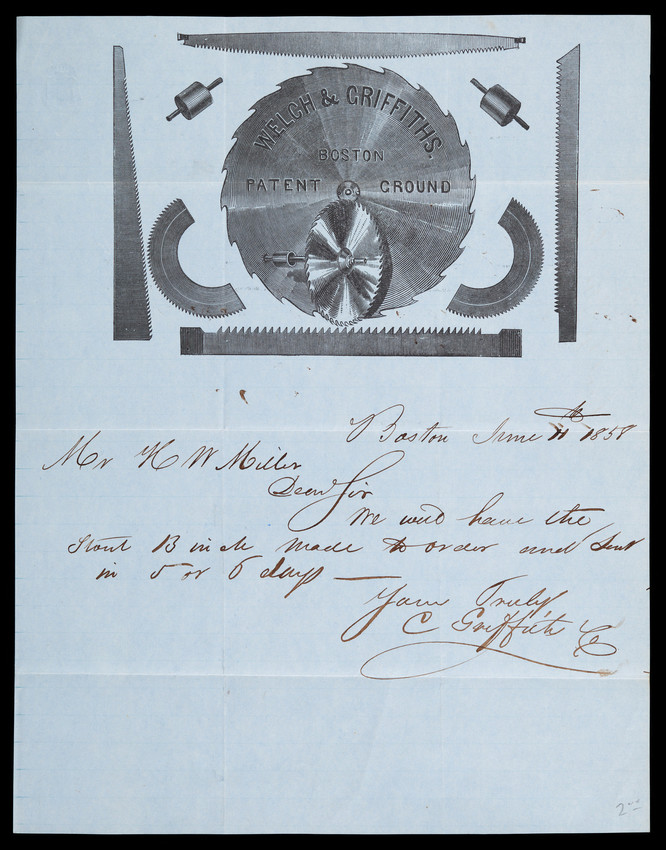 WELCH & GRIFFITHS.
BOSTON
PATENT GROUND
Boston June 11th 1858
Mr H W Miller
Dear Sir
We will have the
Stout 13 inch made to order and sent
in 5 or 6 days —
Yours Truly
C Griffith & Co